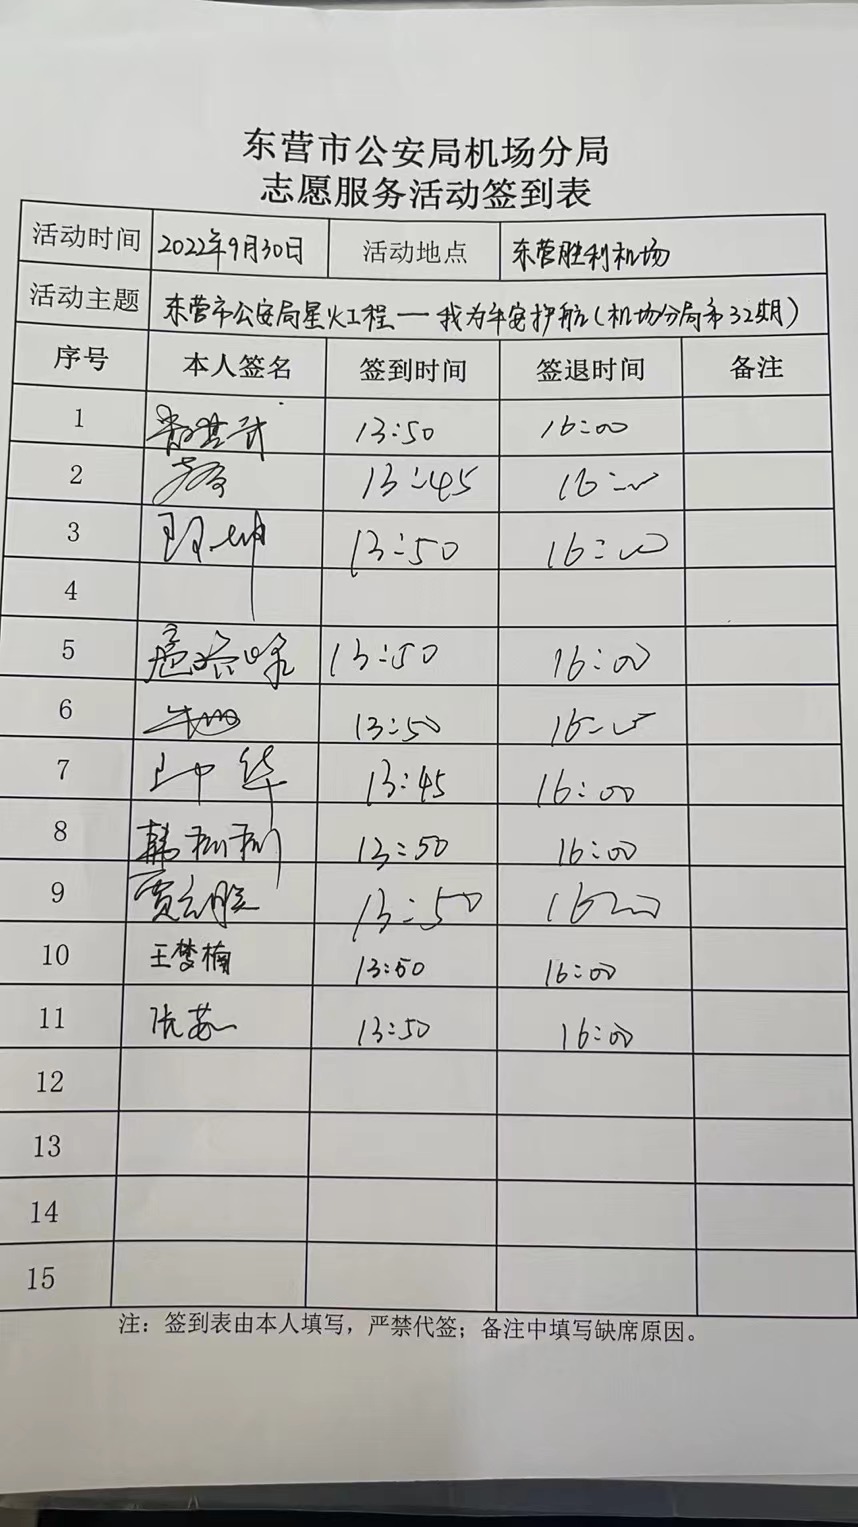 东营市公安局机场分局
志愿服务活动签到表
活动时间 2022年9月30日 活动地点 东营胜利机场
活动主题 东营市公安局星火工程—我为平安护航(机场分局第32期)
序号 本人签名 签到时间 签退时间 备注
1 13:50 16:00
2 13:45 16:00
3 13:50 16:00
4
5 13:50 16:00
6 13:50 16:00
7 13:45 16:00
8 13:50 16:00
9 13:50 16:00
10 王梦楠 13:50 16:00
11 13:50 16:00
12
13
14
15
注：签到表由本人填写，严禁代签；备注中填写缺席原因。